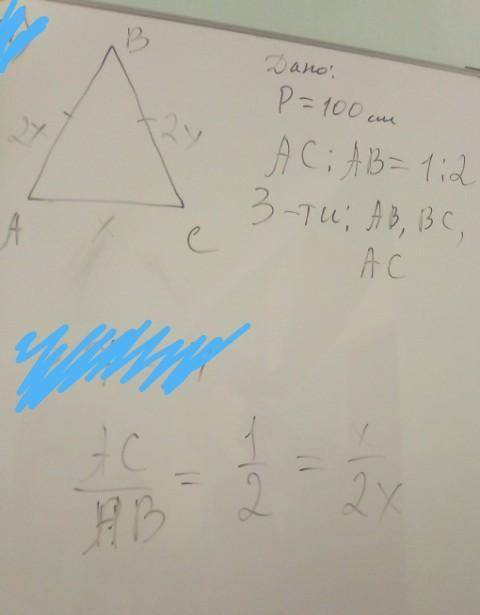 B
2x
2x
A
x
C
Дано:
P = 100 см
AC : AB = 1 : 2
З-ти: AB, BC,
AC
AC/AB = 1/2 = x/2x